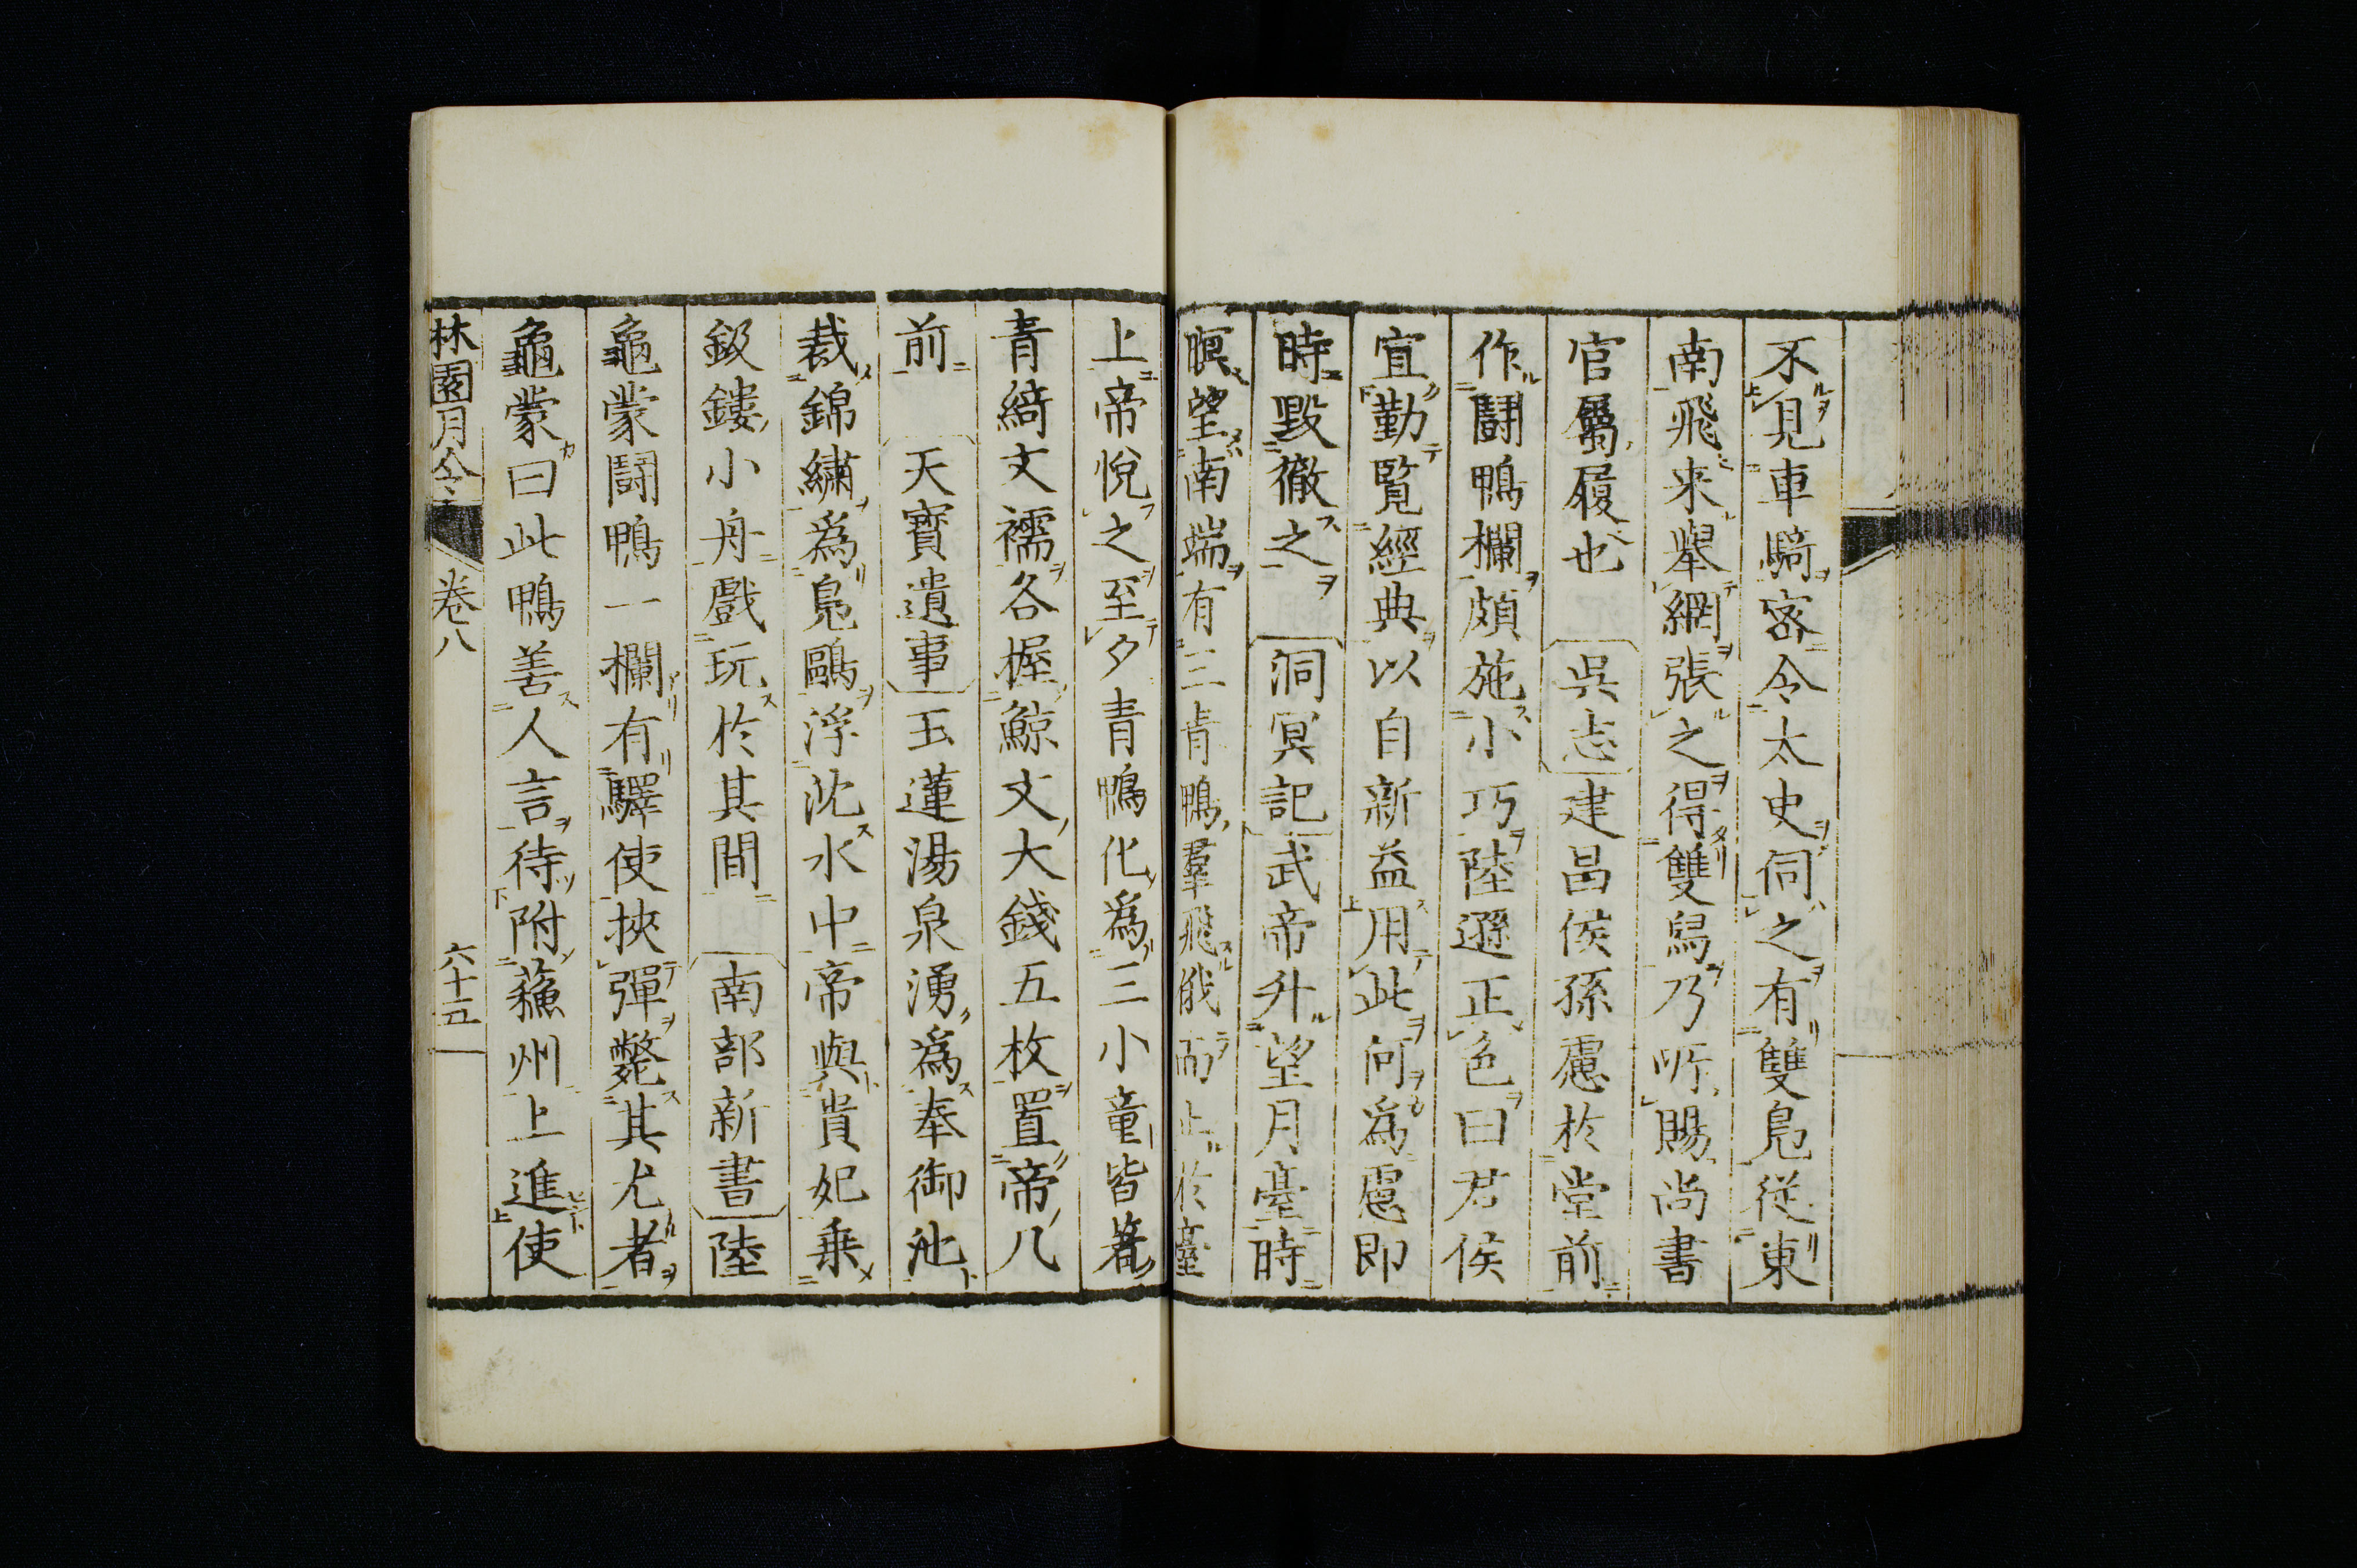 不見車騎密令太史伺之有雙鳧從東
南飛来擧網張之得雙舄乃所賜尚書
官屬履也 吳志建昌侯孫慮於堂前
作鬪鴨欄頗施小巧陸遜正色曰君侯
宜勤覧經典以自新益用此何爲慮即
時毀徹之 洞冥記武帝升望月臺時
暝望南端有三青鴨羣飛俄而止於臺
上帝悅之至夕青鴨化爲三小童皆著
青綺文襦各握鯨文大錢五枚置帝几
前 天寳遺事玉蓮湯泉湧爲奉御池
裁錦繍爲鳬鷗浮沈水中帝與貴妃乗
鈒鏤小舟戲玩於其間 南部新書陸
龜蒙鬪鴨一欄有驛使挾彈斃其尤者
龜蒙曰此鴨善人言待附蘓州上進使
林園月令 卷八 六十五